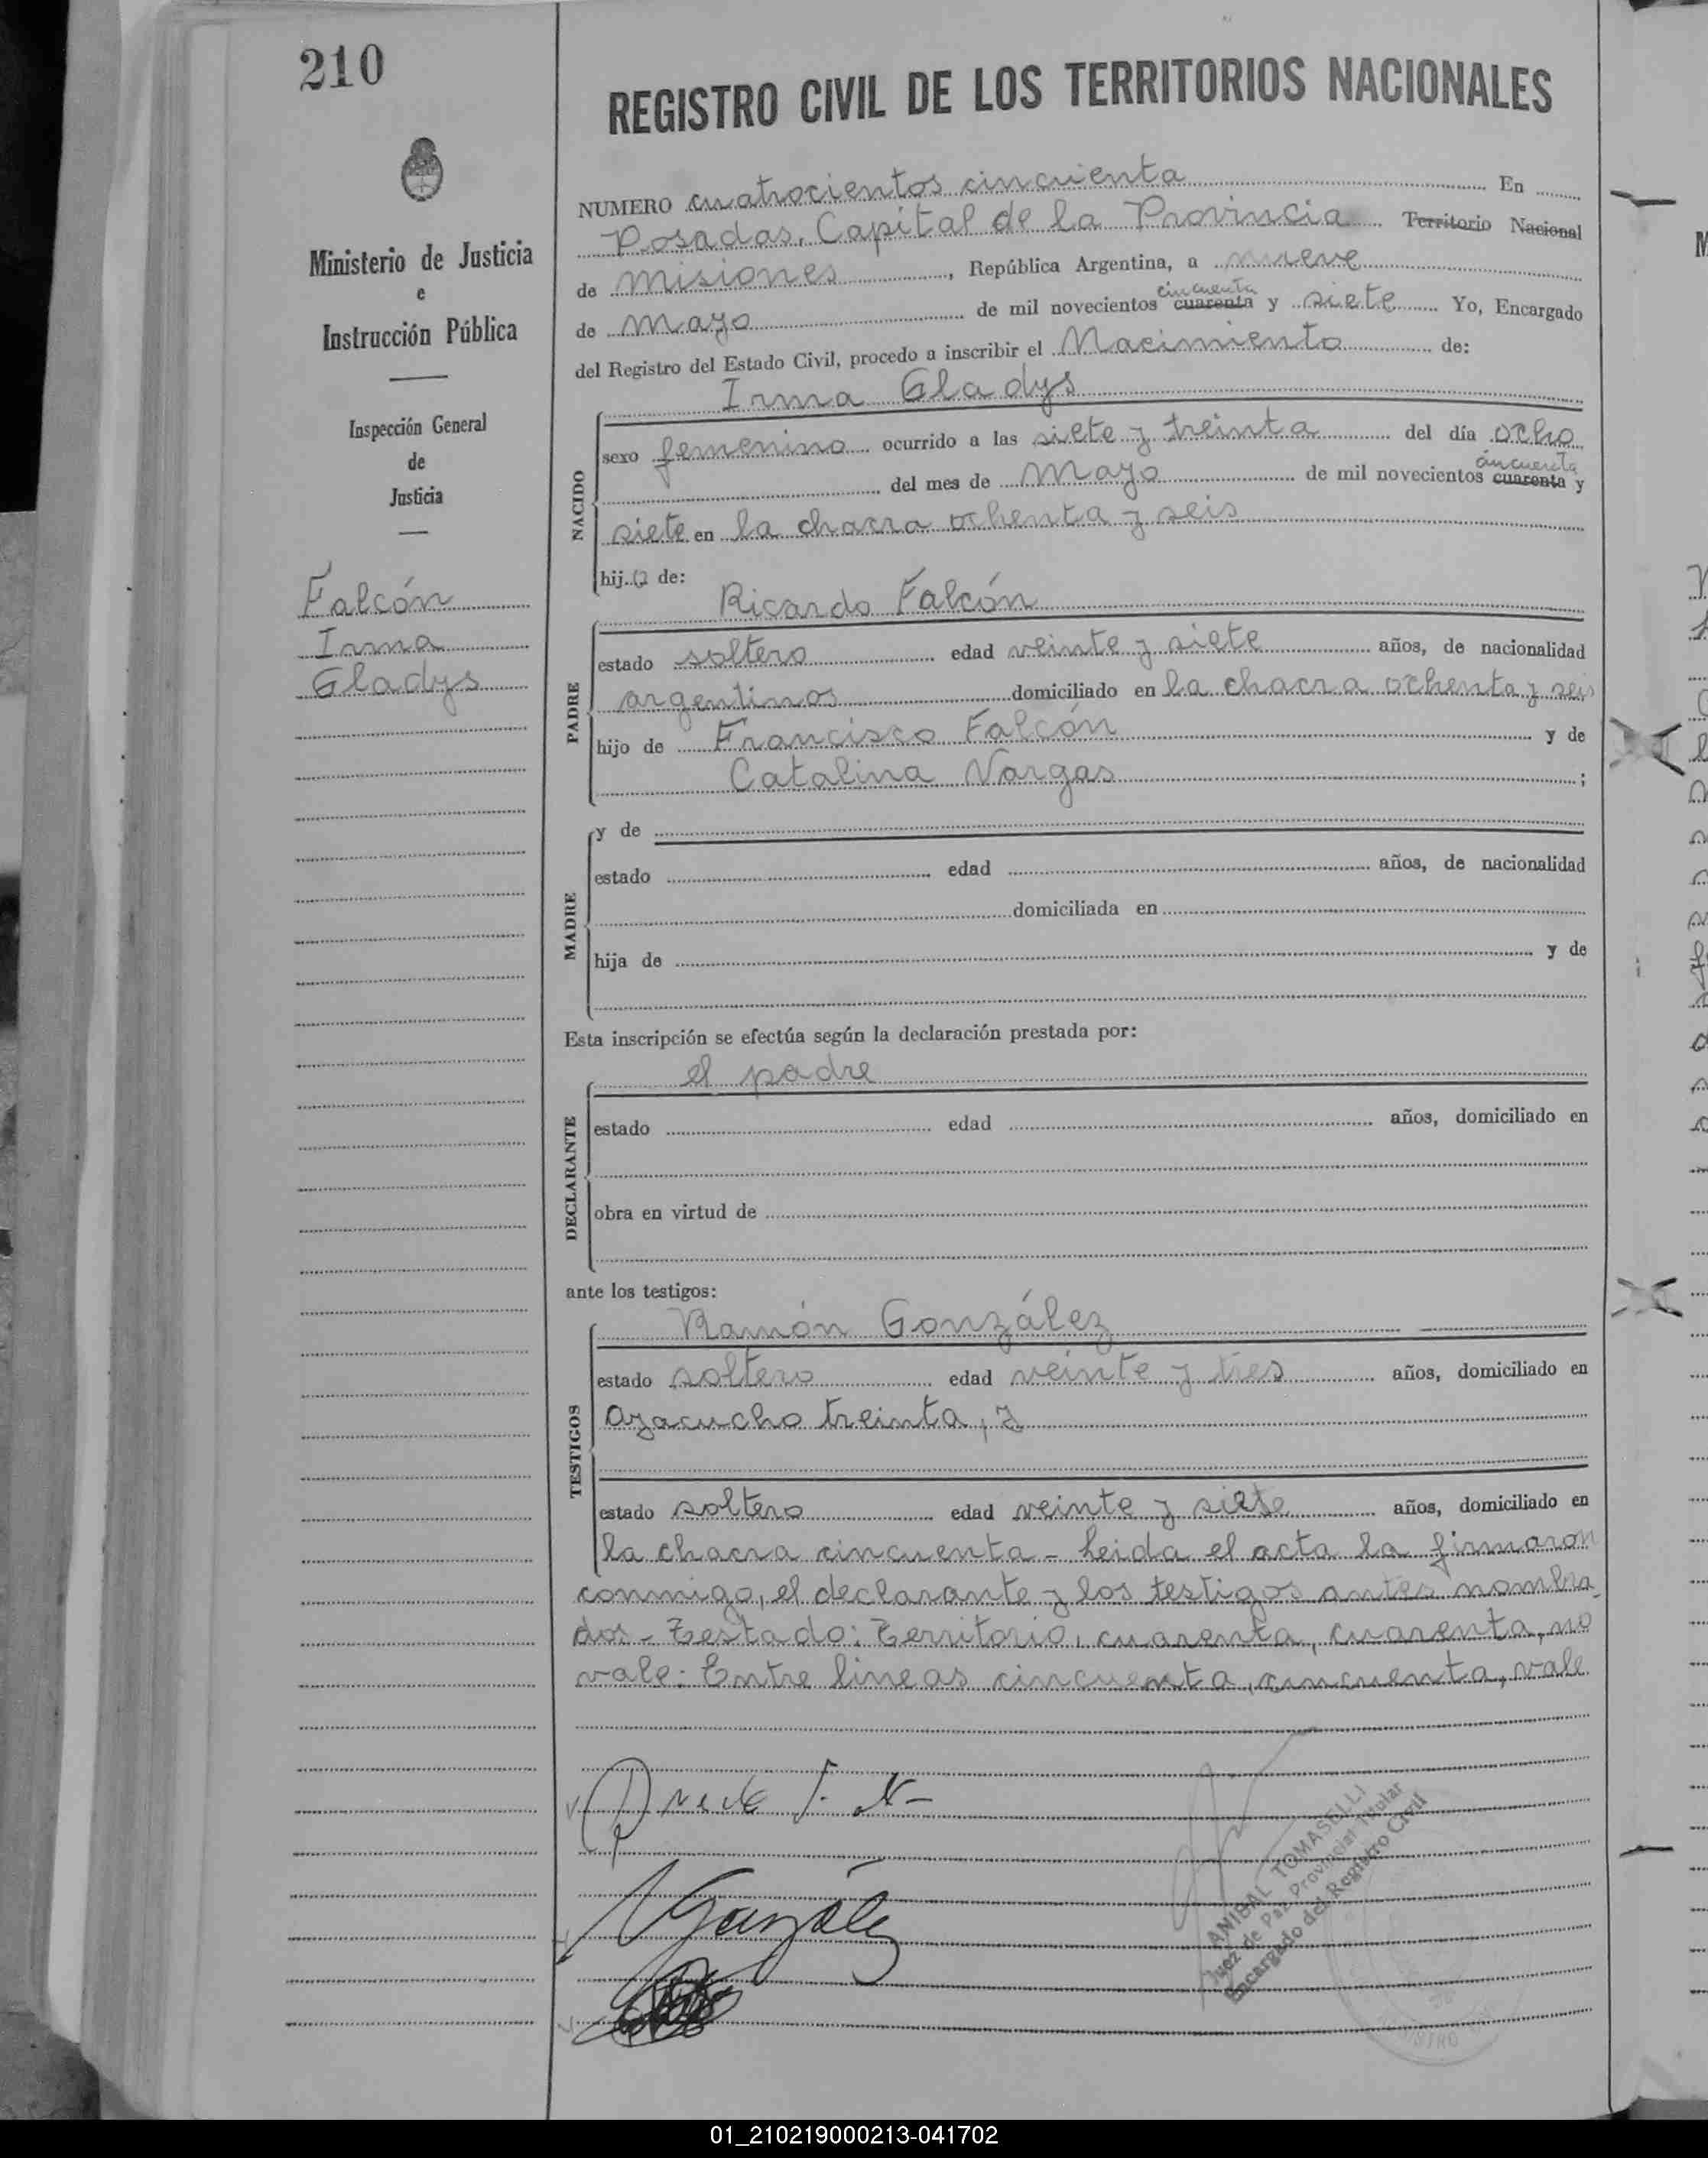 210
REGISTRO CIVIL DE LOS TERRITORIOS NACIONALES
Ministerio de Justicia
e
Instrucción Pública
Inspección General
de
Justicia
Falcón
Irma
Gladys
NUMERO cuatrocientos cincuenta En
Posadas, Capital de la Provincia Territorio Nacional
de misiones, República Argentina, a nueve
cincuenta
de mayo de mil novecientos cuarenta y siete Yo, Encargado
del Registro del Estado Civil, procedo a inscribir el Nacimiento de:
Irma Gladys
NACIDO
sexo femenino ocurrido a las siete y treinta del día ocho
cincuenta
del mes de mayo de mil novecientos cuarenta y
siete en la chacra ochenta y seis
hija de:
Ricardo Falcón
PADRE
estado soltero edad veinte y siete años, de nacionalidad
argentinos domiciliado en la chacra ochenta y seis
hijo de Francisco Falcón y de
Catalina Vargas ;
MADRE
y de
estado edad años, de nacionalidad
domiciliada en
hija de y de
Esta inscripción se efectúa según la declaración prestada por:
el padre
DECLARANTE
estado edad años, domiciliado en
obra en virtud de
ante los testigos:
Ramón González
TESTIGOS
estado soltero edad veinte y tres años, domiciliado en
ayacucho treinta, y
estado soltero edad veinte y siete años, domiciliado en
la chacra cincuenta - Leida el acta la firmaron
conmigo, el declarante y los testigos antes nombra
dos - Testado: Territorio, cuarenta, cuarenta, no
vale: Entre lineas cincuenta, cincuenta, vale
González
ANIBAL TOMASELLI
Juez de Paz Provincial Titular
Encargado del Registro Civil
01_210219000213-041702